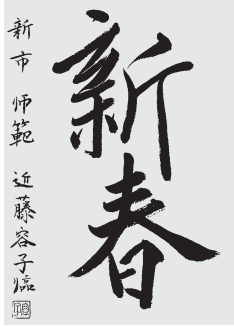 新春
新市 師範 近藤容子臨